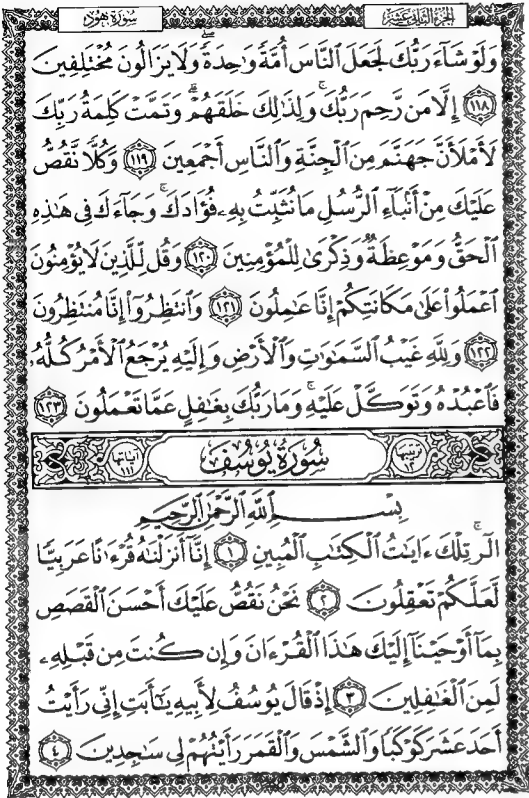 سورة هود
الجزء الثاني عشر
وَلَوْ شَآءَ رَبُّكَ لَجَعَلَ ٱلنَّاسَ أُمَّةً وَٰحِدَةً ۖ وَلَا يَزَالُونَ مُخْتَلِفِينَ
١١٨ إِلَّا مَن رَّحِمَ رَبُّكَ ۚ وَلِذَٰلِكَ خَلَقَهُمْ ۗ وَتَمَّتْ كَلِمَةُ رَبِّكَ
لَأَمْلَأَنَّ جَهَنَّمَ مِنَ ٱلْجِنَّةِ وَٱلنَّاسِ أَجْمَعِينَ ١١٩ وَكُلًّا نَّقُصُّ
عَلَيْكَ مِنْ أَنۢبَآءِ ٱلرُّسُلِ مَا نُثَبِّتُ بِهِۦ فُؤَادَكَ ۚ وَجَآءَكَ فِى هَٰذِهِ
ٱلْحَقُّ وَمَوْعِظَةٌ وَذِكْرَىٰ لِلْمُؤْمِنِينَ ١٢٠ وَقُل لِّلَّذِينَ لَا يُؤْمِنُونَ
ٱعْمَلُوا۟ عَلَىٰ مَكَانَتِكُمْ إِنَّا عَٰمِلُونَ ١٢١ وَٱنتَظِرُوٓا۟ إِنَّا مُنتَظِرُونَ
١٢٢ وَلِلَّهِ غَيْبُ ٱلسَّمَٰوَٰتِ وَٱلْأَرْضِ وَإِلَيْهِ يُرْجَعُ ٱلْأَمْرُ كُلُّهُۥ
فَٱعْبُدْهُ وَتَوَكَّلْ عَلَيْهِ ۚ وَمَا رَبُّكَ بِغَٰفِلٍ عَمَّا تَعْمَلُونَ ١٢٣
ترتيبها ١٢ سُورَةُ يُوسُفَ آياتها ١١١
بِسْمِ ٱللَّهِ ٱلرَّحْمَٰنِ ٱلرَّحِيمِ
الٓر ۚ تِلْكَ ءَايَٰتُ ٱلْكِتَٰبِ ٱلْمُبِينِ ١ إِنَّآ أَنزَلْنَٰهُ قُرْءَٰنًا عَرَبِيًّا
لَّعَلَّكُمْ تَعْقِلُونَ ٢ نَحْنُ نَقُصُّ عَلَيْكَ أَحْسَنَ ٱلْقَصَصِ
بِمَآ أَوْحَيْنَآ إِلَيْكَ هَٰذَا ٱلْقُرْءَانَ وَإِن كُنتَ مِن قَبْلِهِۦ
لَمِنَ ٱلْغَٰفِلِينَ ٣ إِذْ قَالَ يُوسُفُ لِأَبِيهِ يَٰٓأَبَتِ إِنِّى رَأَيْتُ
أَحَدَ عَشَرَ كَوْكَبًا وَٱلشَّمْسَ وَٱلْقَمَرَ رَأَيْتُهُمْ لِى سَٰجِدِينَ ٤